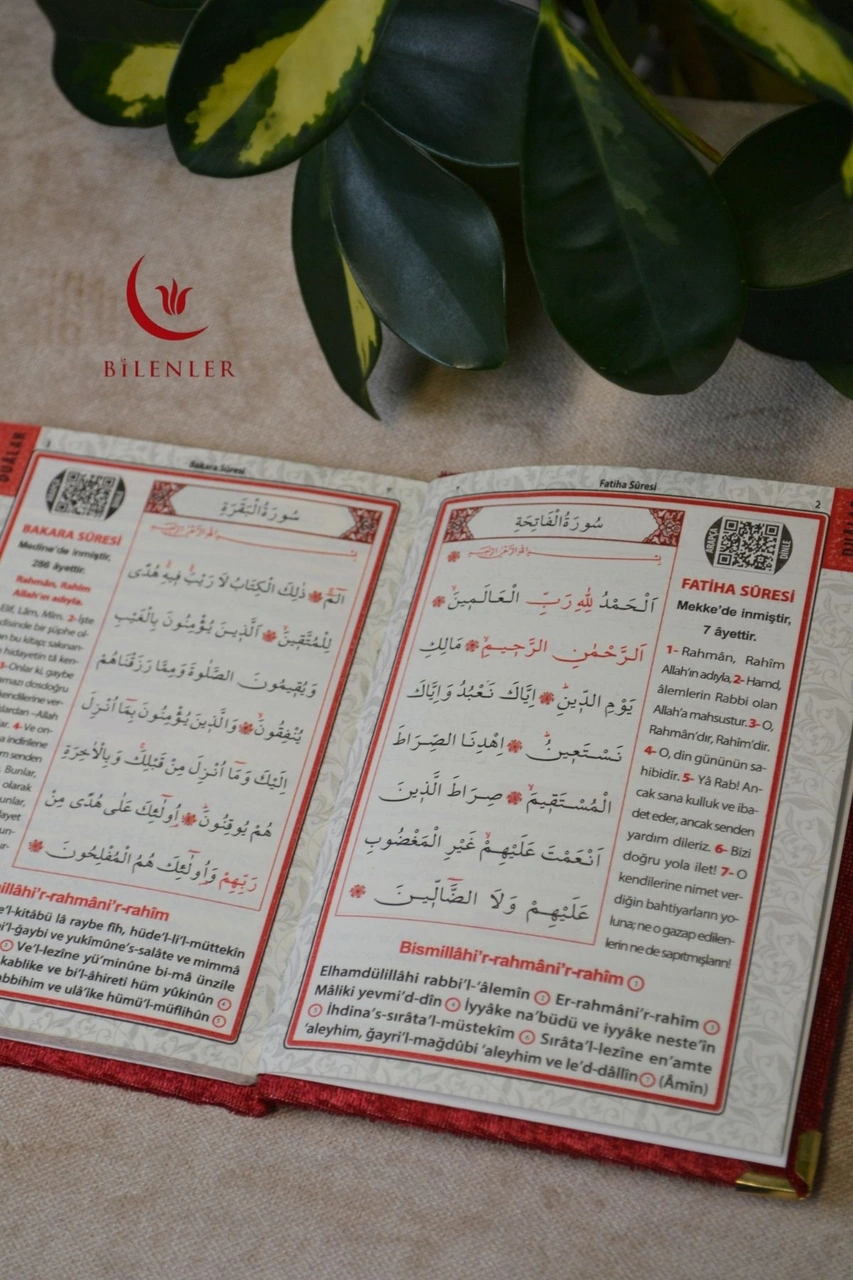 BİLENLER
Fatiha Sûresi
2
سُورَةُ الْفَاتِحَةِ
اَلْحَمْدُ لِلّٰهِ رَبِّ الْعَالَمِينَ
اَلرَّحْمٰنِ الرَّحِيمِ مَالِكِ
يَوْمِ الدِّينِ اِيَّاكَ نَعْبُدُ وَاِيَّاكَ
نَسْتَعِينُ اِهْدِنَا الصِّرَاطَ
الْمُسْتَقِيمَ صِرَاطَ الَّذِينَ
اَنْعَمْتَ عَلَيْهِمْ غَيْرِ الْمَغْضُوبِ
عَلَيْهِمْ وَلَا الضَّالِّينَ
DİNLE
FATİHA SÛRESİ
Mekke'de inmiştir,
7 âyettir.
1- Rahmân, Rahîm
Allah'ın adıyla, 2- Hamd,
âlemlerin Rabbi olan
Allah'a mahsustur. 3- O,
Rahmân'dır, Rahîm'dir.
4- O, din gününün sa-
hibidir. 5- Yâ Rab! An-
cak sana kulluk ve iba-
det eder, ancak senden
yardım dileriz. 6- Bizi
doğru yola ilet! 7- O
kendilerine nimet ver-
diğin bahtiyarların yo-
luna; ne o gazap edilen-
lerin ne de sapıtmışların!
Bismillâhi'r-rahmâni'r-rahîm 1
Elhamdülillâhi rabbi'l-'âlemîn 2 Er-rahmâni'r-rahîm 3
Mâliki yevmi'd-dîn 4 İyyâke na'büdü ve iyyâke neste'în
5 İhdina's-sırâta'l-müstekîm 6 Sırâta'l-lezîne en'amte
'aleyhim, ğayri'l-mağdûbi 'aleyhim ve le'd-dâllîn 7 (Âmîn)
Bakara Sûresi
سُورَةُ الْبَقَرَةِ
الٓمٓ ذٰلِكَ الْكِتَابُ لَا رَيْبَ فِيهِ هُدًى
لِلْمُتَّقِينَ اَلَّذِينَ يُؤْمِنُونَ بِالْغَيْبِ
وَيُقِيمُونَ الصَّلٰوةَ وَمِمَّا رَزَقْنَاهُمْ
يُنْفِقُونَ وَالَّذِينَ يُؤْمِنُونَ بِمَٓا اُنْزِلَ
اِلَيْكَ وَمَٓا اُنْزِلَ مِنْ قَبْلِكَ وَبِالْاٰخِرَةِ
هُمْ يُوقِنُونَ اُولٰٓئِكَ عَلٰى هُدًى مِنْ
رَبِّهِمْ وَاُولٰٓئِكَ هُمُ الْمُفْلِحُونَ
DUALAR
BAKARA SÛRESİ
Medine'de inmiştir,
286 âyettir.
Rahmân, Rahîm
Allah'ın adıyla.
Elif, Lâm, Mîm. 2- İşte
disinde bir şüphe ol-
n bu kitap; sakınan-
n hidayetin tâ ken-
3- Onlar ki, gaybe
amazı dosdoğru
kendilerine ver-
lardan -Allah
ar. 4- Ve on-
a indirilene
m senden
Bunlar,
olarak
unlar,
dayet
un-
illâhi'r-rahmâni'r-rahîm
e'l-kitâbü lâ raybe fîh, hüde'l-li'l-müttekîn
i'l-ğaybi ve yukîmûne's-salâte ve mimmâ
Ve'l-lezîne yü'minûne bi-mâ ünzile
kablike ve bi'l-âhireti hüm yûkinûn 4
abbihim ve ulâ'ike hümü'l-müflihûn 5